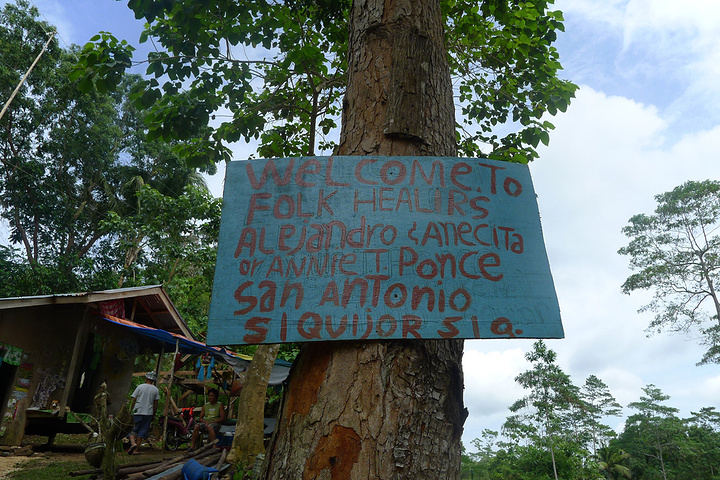 WELCOME TO
FOLK HEALIRS
ALEJANDRO & ANECITA
or ANNIE I PONCE
SAN ANTONIO
SIQUIJOR SIQ.